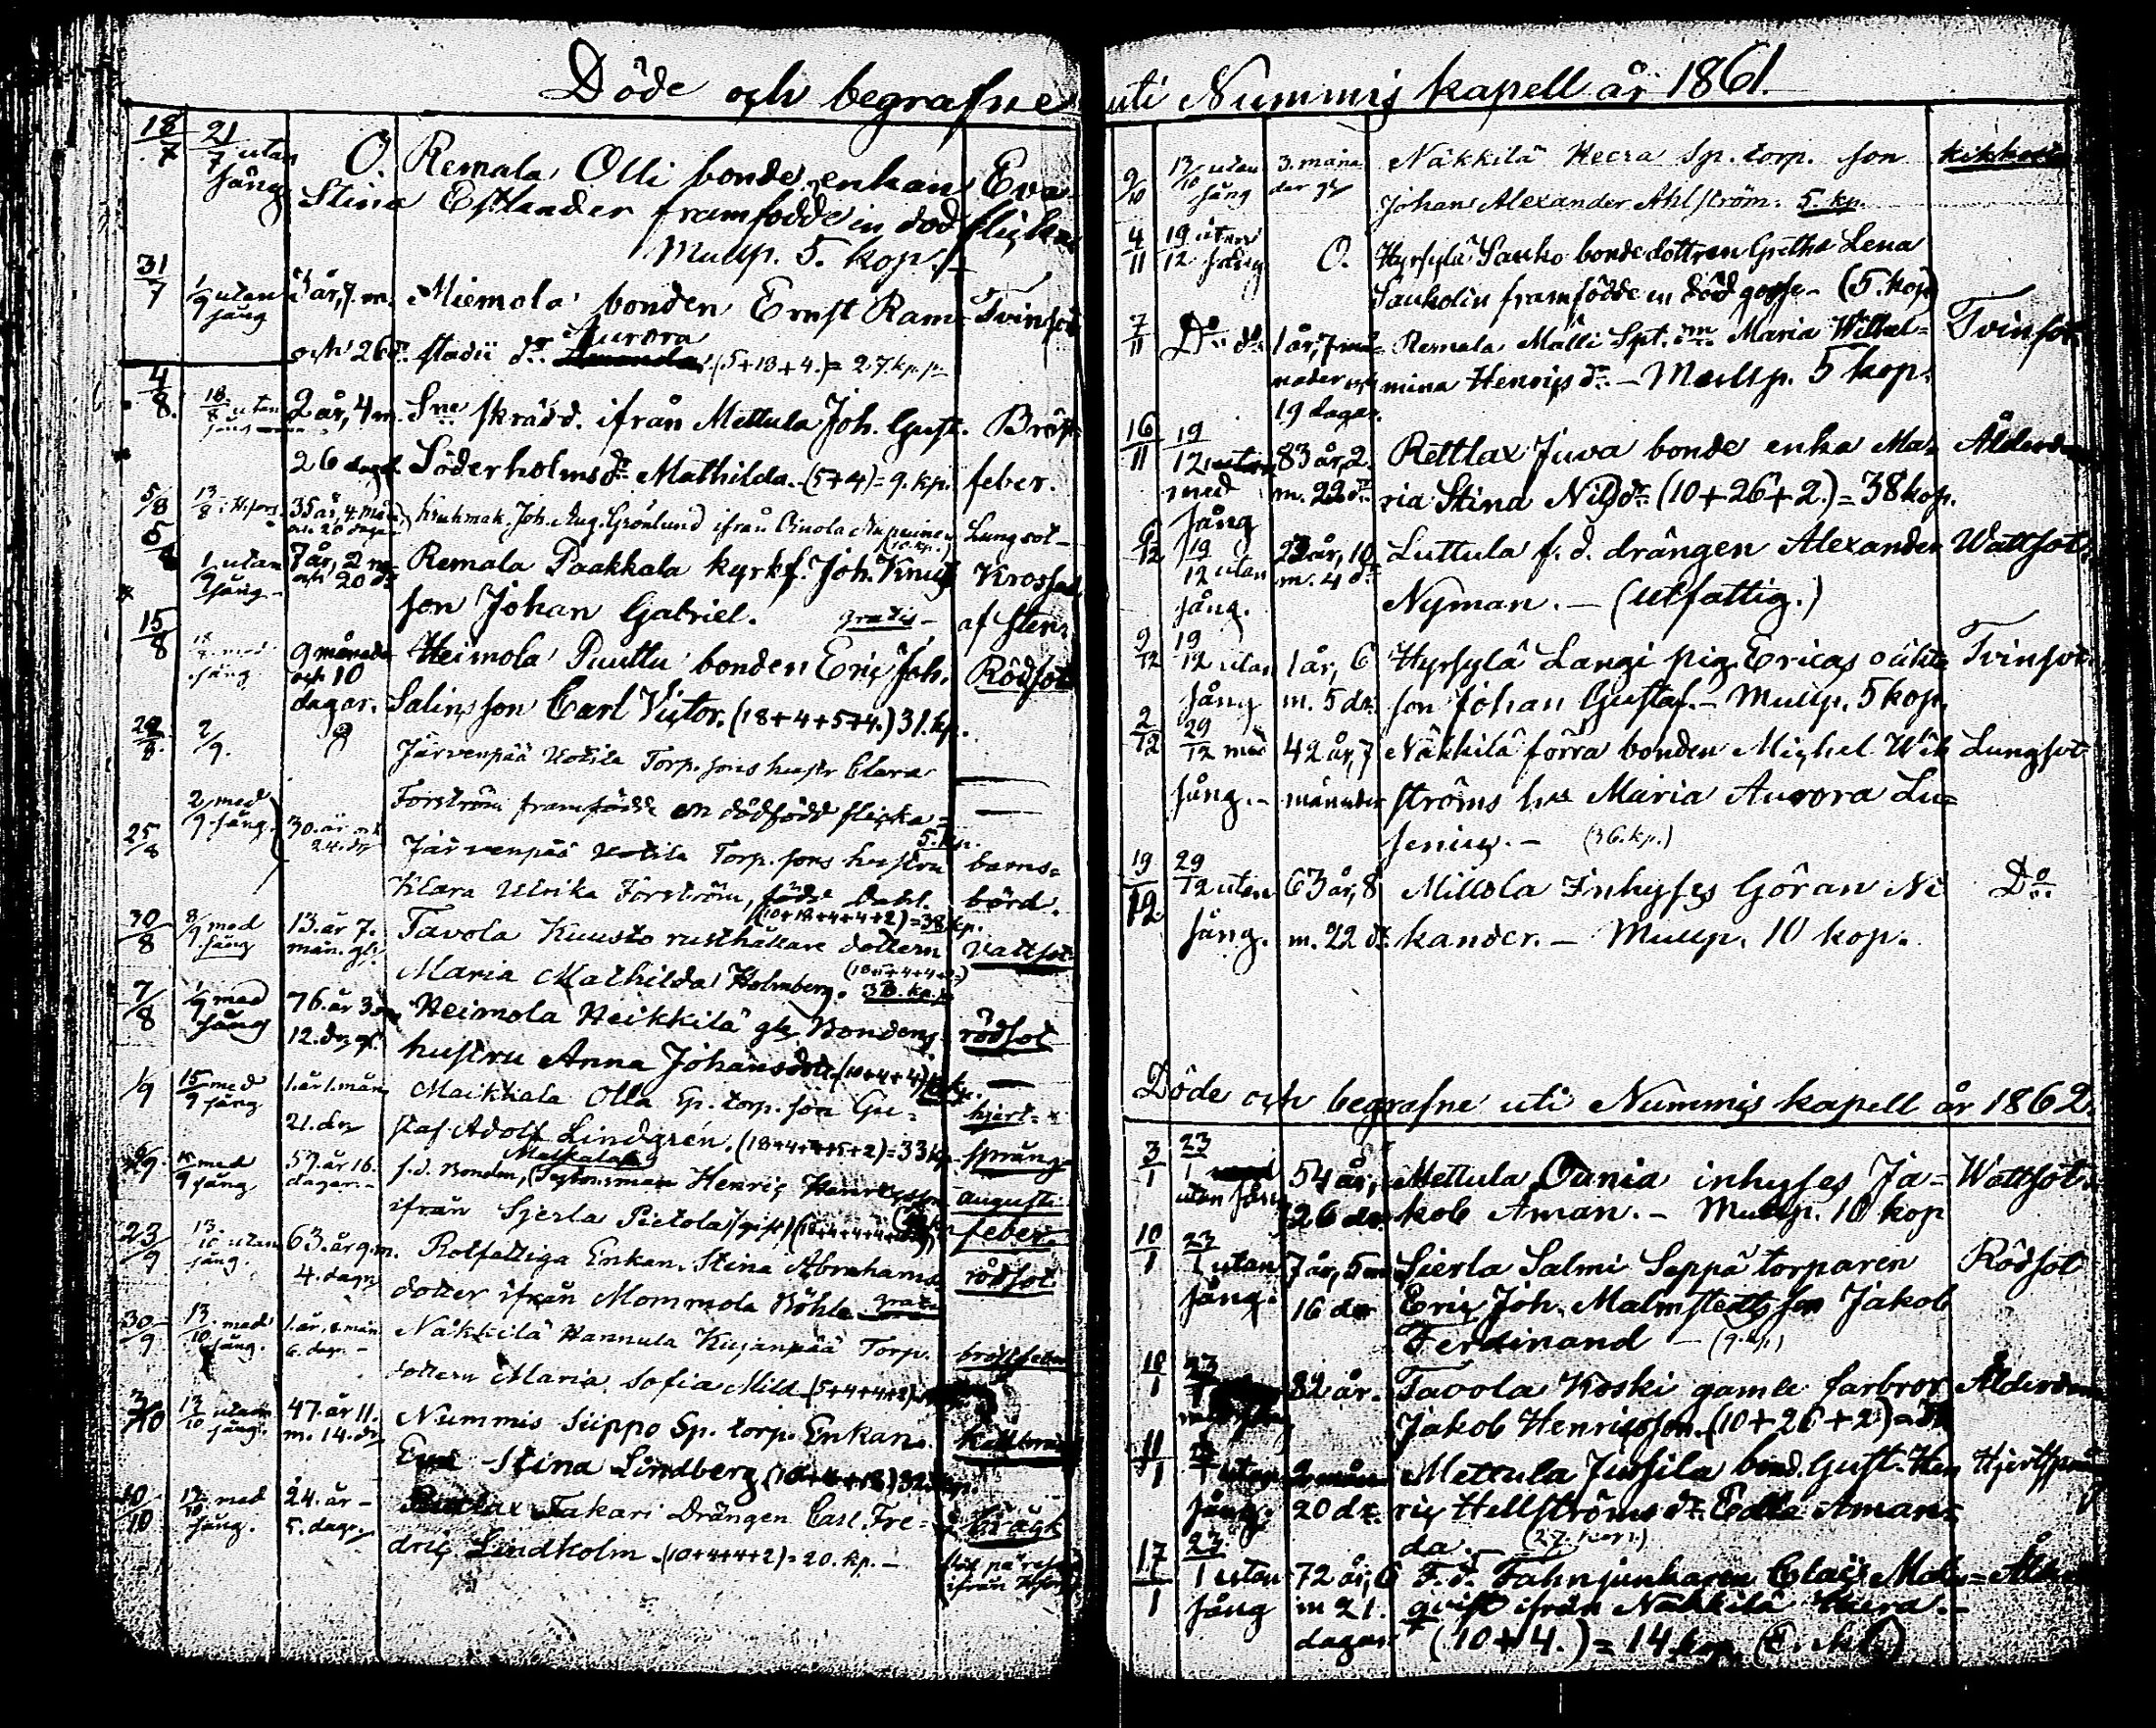 Döde och begrafne uti Nummis kapell år 1861.
18/7 21/7 utan O. Remala Olli bonde enkan Eva
sång Stina Estlander framfödde en död flicka
Mullp. 5. kop.
31/7 1/9 utan år, 7 m. Miemola bonden Ernst Ram= Tvinsot
sång Aurora
och 26 stadii dr. (5+18+4.)= 27 kp.
4/8. 18/8 utan 2 år, 4 m. Sne skrädd. ifrån Mettula Joh. Gust. Bröst
sång
26 dagar Söderholms dr. Mathilda. (5+4)= 9. kp. feber.
5/8 13/8 35 år, 4 mån krukmak. Joh. Aug. Grönlund ifrån Lungsot
och 20 dagar
5/8 1/9 utan 7 år, 2 m. Remala Paakkala kyrkf. Joh. Knuts Krossad
sång och 20 dr.
son Johan Gabriel. gratis af sten.
15/8 18/8 med 9 månader Heimola Puuttu bonden Eric Joh. Rödsot
sång och 10
dagar. Salins son Carl Victor. (18+4+5+4.) 31. kp.
2/9. Järvenpää Uotila Torp. sons hustr Clara
Forström framfödde en dödfödd flicka
5. kp.
25/8 2/9 med sång. 30. år Järvenpää Uotila Torp. sons hustru barns=
24. dr
Klara Ulrika Forström, född Dahl. börd.
(10+18+4+4+2)=38 kp.
30/8 8/9 med 13. år 7. Tavola Kuusto rusthållare dottern Vattsot
sång mån. gl.
Maria Mathilda Holmberg. 38. kp.
7/8 1/9 med 76. år 3 m Heimola Heikkilä gl. Bondens rödsot
sång 12. dr gl.
hustru Anna Johansdotr (10+4+4)
1/9 15/9 med 1. år 1. mån Maikkala Olla Sp. torp. son Gu= hjert=
sång
21. dr staf Adolf Lindgrén. (18+4+4+5+2)=33 kp. språng
/9 15/9 med 57. år 16. f.d. Bonden, Henric augusti
sång dagar.
ifrån Sjerla Pietola feber
23/9 13/10 utan 63. år 9 m. Rotfattiga Enkan Stina Abrahams rödsot
sång. 4. dagr
dotter ifrån Mommola Böhle gratis
30/9 13/10 med 1. år, mån Näkkilä Hannula Kujanpää Torp. bröstfeber
sång. 6. dagr
dottern Maria Sofia Mild (5+4+4+2)
3/10 13/10 utan 47. år 11. Nummis Siippo Sp. torp. Enkan
sång. m. 14. dr
Eva Stina Lindberg
10/10 13/10 med 24. år Takari Drängen Carl Fre= bråck
sång. 5. dagr
dric Lindholm (10+4+4+2)=20. kp. död på resa
ifrån
9/10 13/10 utan 3. måna Näkkilä Heera Sp. torp. son kikhosta
sång der gl
Johan Alexander Ahlström. 5. kp.
4/11 19/12 utan O. Hyrsylä Sauko bondedottren Gretha Lena
sång
Saukolin framfödde en död gosse (5. kop)
7/11 Do do 1 år, 7 må= Remala Mälli Spt. Maria Wilhel= Tvinsot
nader och mina Henrics dr. - Mullp. 5 kop.
19 dagar.
16/11 19/12 utan 83 år, 2 Rettlax Juva bonde enka Ma= Ålderdom
med m. 22 dr ria Stina Nils dr. (10+26+2.)=38 kop.
sång
6/12 19/12 utan 23 år, 10 Luttula f. d. drängen Alexander Wattsot
m. 4 dr
sång. Nyman. - (utfattig.)
9/12 19/12 utan 1 år, 6 Hyrsylä Langi pig. Ericas oäkta Tvinsot
sång m. 5 dr. son Johan Gustaf. - Mullp. 5 kop.
2/12 29/12 med 42 år, 7 Näkkilä förra bonden Michel Wik Lungsot
sång. månader ströms hu Maria Aurora Lu=
senius. - (36. kp.)
19/12 29/12 utan 63 år, 8 Millola Inhyses Göran Ni Do
sång. m. 22 dr. kander. - Mullp. 10 kop.
Döde och begrafne uti Nummis kapell år 1862.
3/1 23/1 54 år, Mettula Ounia inhyses Ja= Wattsot.
utan sång 26 dr. kob Åman. - Mullp. 10 kop
10/1 23/1 utan 7 år, 5 m Sierla Salmi Seppä torparen Rödsot
sång. 16 dr Eric Joh. Malmstedts son Jakob
Ferdinand - (9. kp.)
10/1 23/1 82 år. Tavola Koski gamle farbror Ålderdom
Jakob Henricsson. (10+26+2)=38
11/1 23/1 utan 2 mån Mettula Jussila bond. Gust. Hen Hjertsprång
sång. 20 dr. ric Hellströms dr. Edla Aman=
da. - (27 kop.)
17/1 23/1 utan 72 år, 6 F. d. Fahnjunkaren Claës Malm=
sång m 21. qvist ifrån Näkkilä Heera. -
dagar (10+4.)=14 kop.